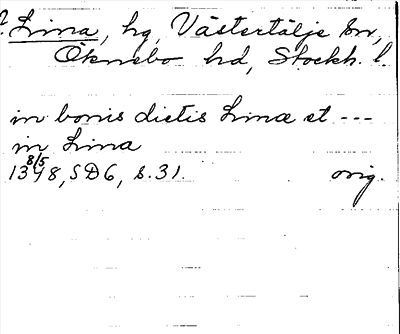 ?Lina, hg, Västertälje sn,
Öknebo hd, Stockh. l.
in bonis dictis Linæ et ---
in Lina
1348 8/5, SD6, s. 31. orig.